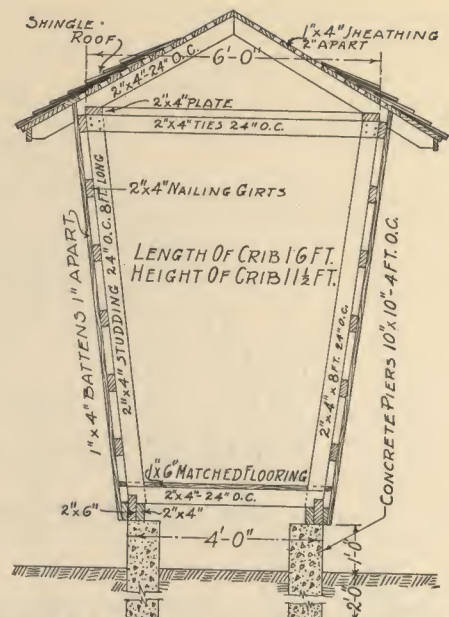 SHINGLE
ROOF
1"x4" SHEATHING
2" APART
6'-0"
2"x4"-24" O.C.
2"x4" PLATE
2"x4" TIES 24" O.C.
2"x4" NAILING GIRTS
LENGTH OF CRIB 16 FT.
HEIGHT OF CRIB 11½ FT.
1"x4" BATTENS 1" APART.
2"x4" STUDDING 24" O.C. 8 FT. LONG
2"x4"x8 FT. 24" O.C.
CONCRETE PIERS 10"x10"-4 FT. O.C.
1"x6" MATCHED FLOORING
2"x4"-24" O.C.
2"x6"
2"x4"
4'-0"
1'-0"
2'-0"